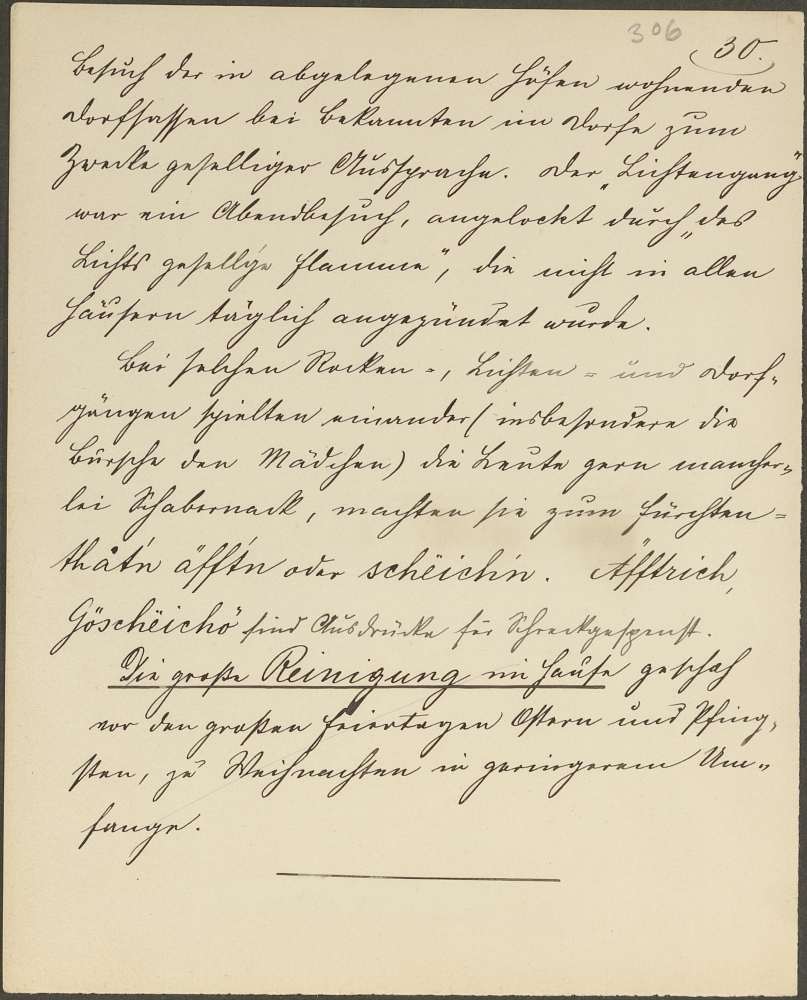 306
30.
Besuch der in abgelegenen Höfen wohnenden
Dorfsassen bei Bekannten im Dorfe zum
Zwecke geselliger Aussprache. Der „Lichtengang“
war ein Abendbesuch, angelockt durch „des
Lichts gesellge Flamme“, die nicht in allen
Häusern täglich angezündet wurde.
Bei solchen Rocken-, Lichten- und Dorf-
gängen spielten einander (insbesondere die
Bursche den Mädchen) die Leute gern mancher-
lei Schabernack, machten sie zum Fürchten =
thåt'n äfft'n oder schëich'n. Äfftrich,
Göschëichö sind Ausdrücke für Schreckgespenst.
Die große Reinigung im Hause geschah
vor den großen Feiertagen Ostern und Pfing-
sten, zu Weihnachten in geringerem Um-
fange.